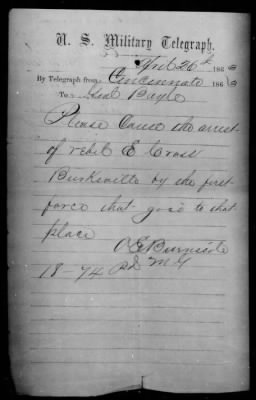 U. S. Military Telegraph.
Aprl 26th 1863
By Telegraph from Cincinnati 1863
To Genl Boyle
Please Cause the arrest
of rebel E Cross
Burksville by the first
force that goes to that
place
A E Burnside
18-74 Pd M G